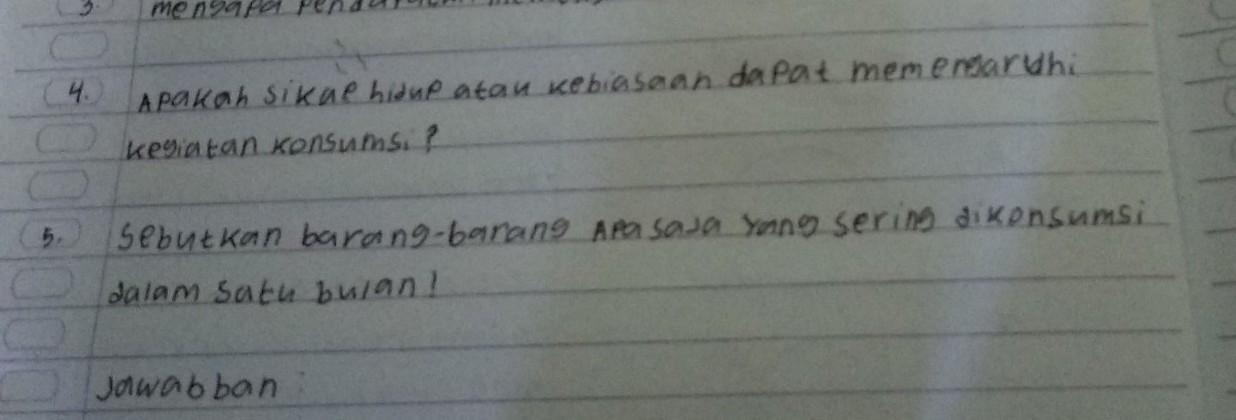 3. mengapa
4. Apakah sikap hidup atau kebiasaan dapat mememgaruhi
kegiatan konsumsi?
5. Sebutkan barang-barang Apa saja yang sering dikonsumsi
dalam satu bulan!
Jawabban :